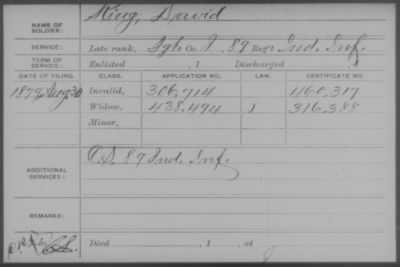 NAME OF SOLDIER: King, David
SERVICE: Late rank, Co. I, 89 Reg't Ind. Inf.
TERM OF SERVICE: Enlisted , 1 Discharged , 1
DATE OF FILING. CLASS. APPLICATION NO. LAW. CERTIFICATE NO.
1879, Aug 30 Invalid, 306,714 460,317
Widow, 438,494 1 316,388
Minor,
ADDITIONAL SERVICES: 89 Ind. Inf.
REMARKS:
Died , 1 , at